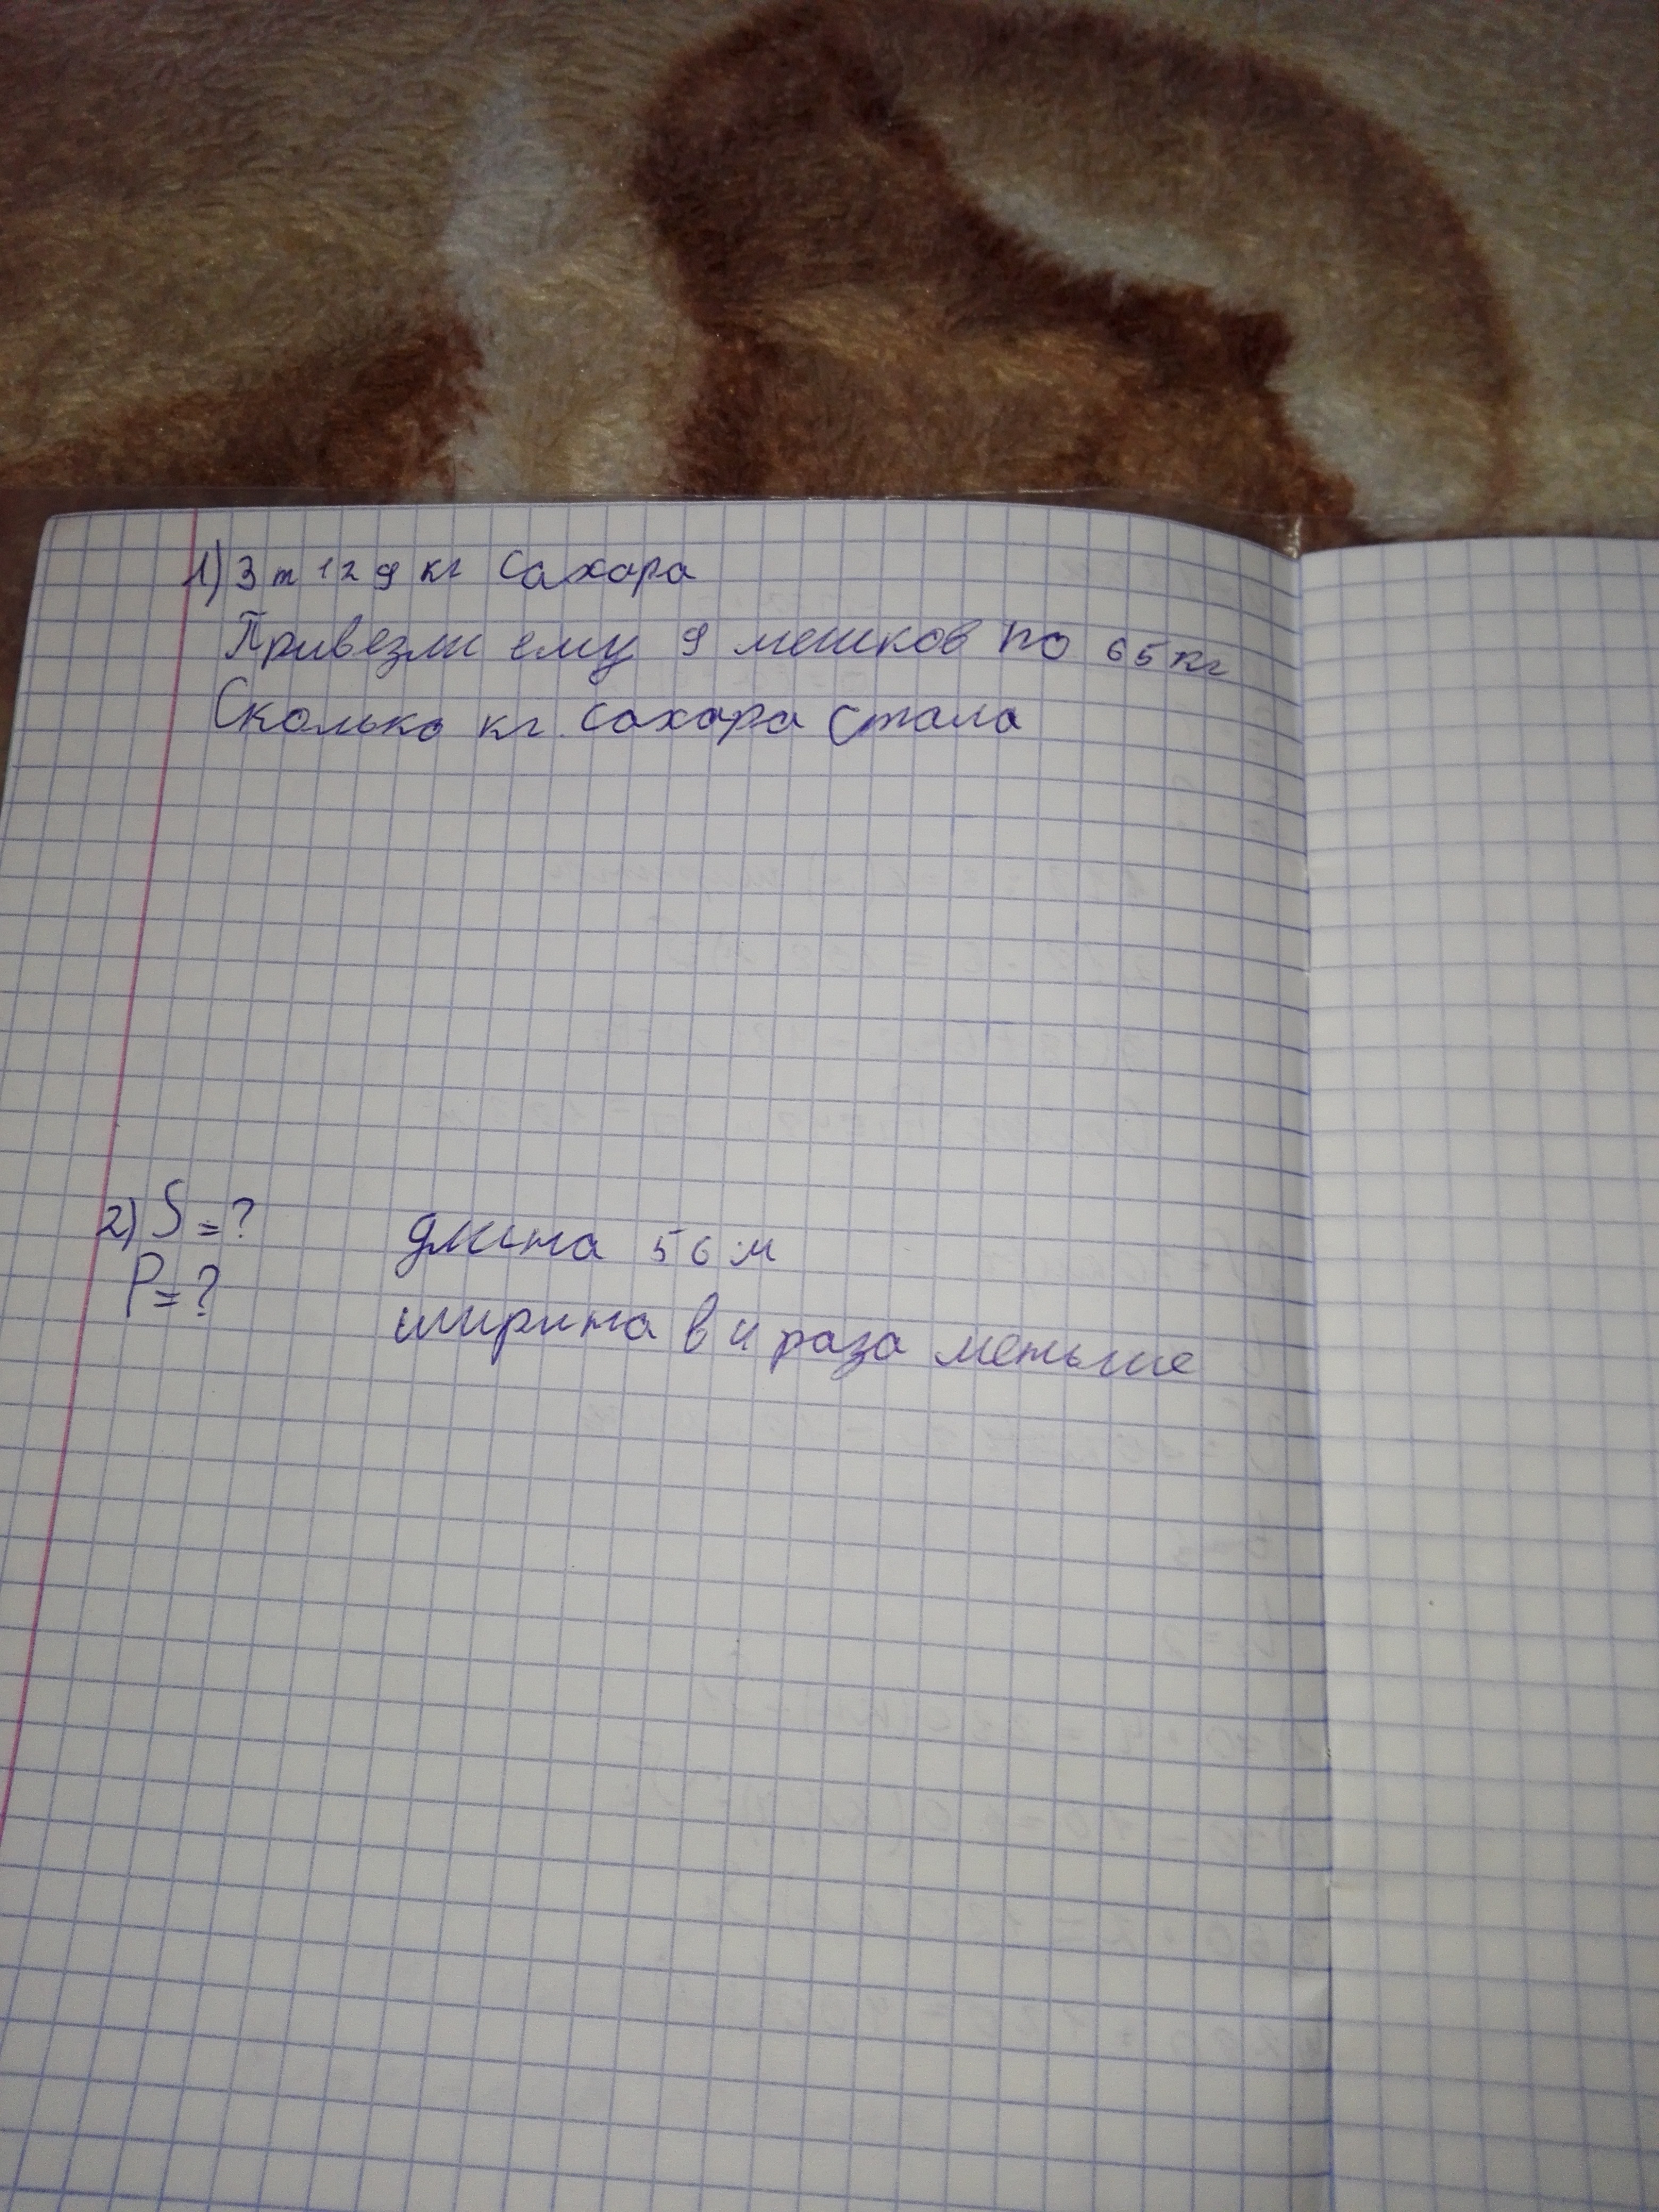 1) 3 т 129 кг сахара
Привезли ему 9 мешков по 65 кг
Сколько кг. сахара стала
2) S = ?
P = ?
длина 56 м
ширина в 4 раза меньше